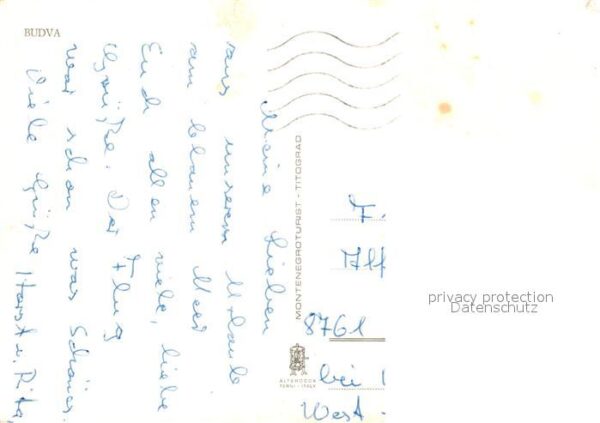 BUDVA
Meine Lieben
aus unserem Urlaub
am blauem Meer
Euch allen viele, liebe
Grüße. Der Flug
war schon was Schönes.
Viele Grüße Horst u. Rita
MONTENEGROTURIST - TITOGRAD
F.
Alf
privacy protection
Datenschutz
8761
bei
West-
ALTEROCCA
TERNI - ITALY